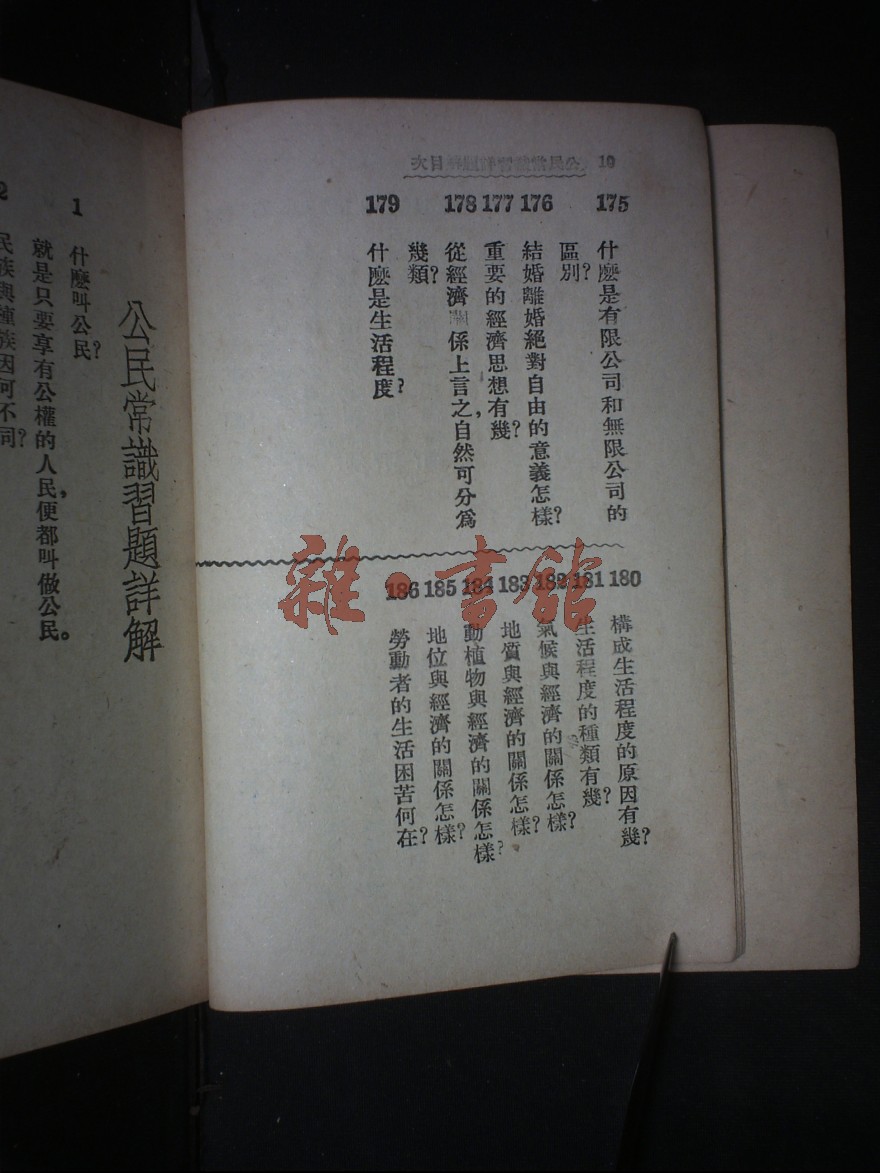 10 公民常識習題詳解目次
175 什麼是有限公司和無限公司的
區別?
176 結婚離婚絕對自由的意義怎樣?
177 重要的經濟思想有幾?
178 從經濟關係上言之,自然可分爲
幾類?
179 什麼是生活程度?
180 構成生活程度的原因有幾?
181 生活程度的種類有幾?
182 氣候與經濟的關係怎樣?
183 地質與經濟的關係怎樣?
184 動植物與經濟的關係怎樣?
185 地位與經濟的關係怎樣?
186 勞動者的生活困苦何在?
公民常識習題詳解
1 什麼叫公民?
就是只要享有公權的人民,便都叫做公民。
2 民族與種族因何不同?
雜·書館